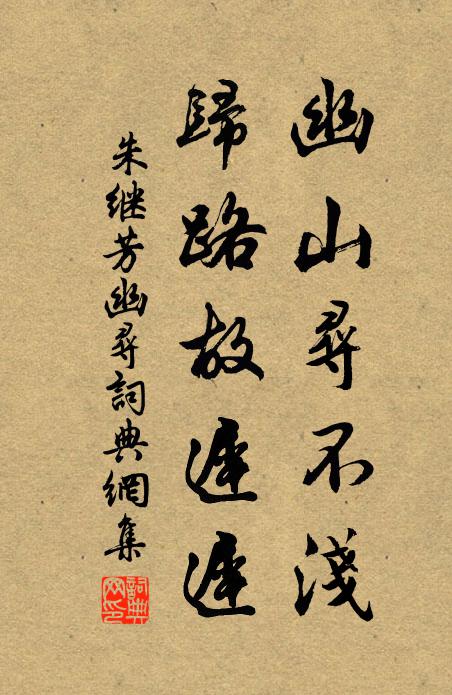 幽山尋不淺
歸路故遲遲
朱继芳幽尋詞典網集
詞典
网印